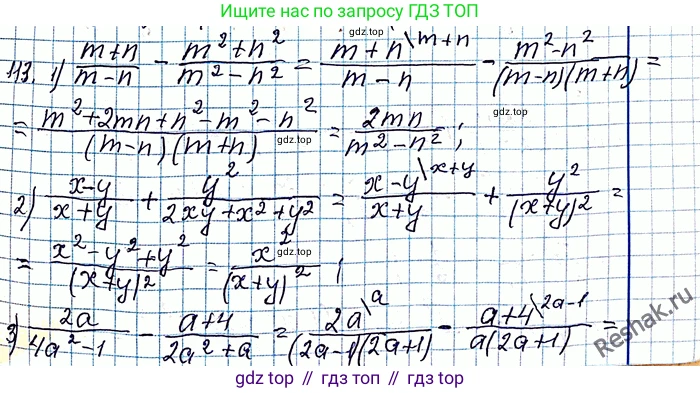 Ищите нас по запросу ГДЗ ТОП
113. 1) \frac{m+n}{m-n} - \frac{m^2+n^2}{m^2-n^2} = \frac{m+n^{\backslash m+n}}{m-n} - \frac{m^2-n^2}{(m-n)(m+n)} =
= \frac{m^2+2mn+n^2-m^2-n^2}{(m-n)(m+n)} = \frac{2mn}{m^2-n^2};
2) \frac{x-y}{x+y} + \frac{y^2}{2xy+x^2+y^2} = \frac{x-y^{\backslash x+y}}{x+y} + \frac{y^2}{(x+y)^2} =
= \frac{x^2-y^2+y^2}{(x+y)^2} = \frac{x^2}{(x+y)^2};
3) \frac{2a}{4a^2-1} - \frac{a+4}{2a^2+a} = \frac{2a^{\backslash a}}{(2a-1)(2a+1)} - \frac{a+4^{\backslash 2a-1}}{a(2a+1)} =
gdz.top
gdz.top
gdz.top
gdz.top
gdz.top
gdz.top
Reshak.ru
gdz top // гдз топ // gdz top // гдз топ